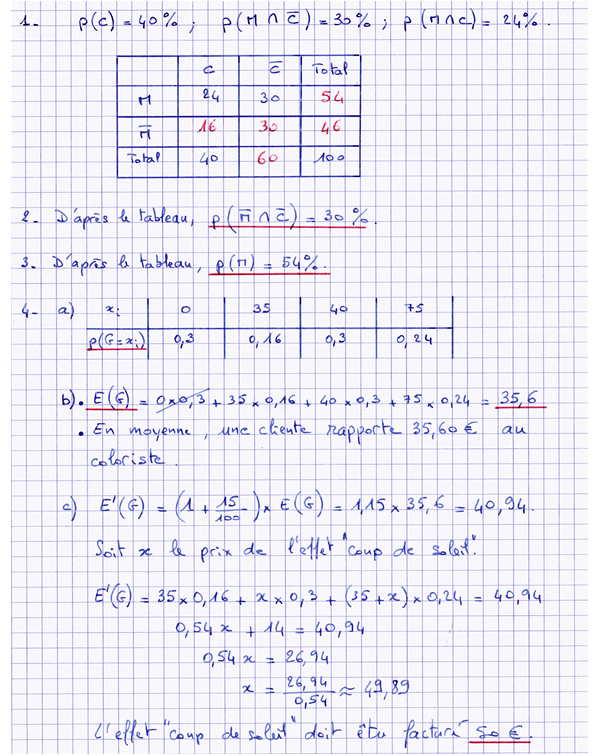 1. p(C) = 40% ; p(M ∩ C̅) = 30% ; p(M ∩ C) = 24%.
C C̅ Total
M 24 30 54
M̅ 16 30 46
Total 40 60 100
2- D'après le tableau, p(M̅ ∩ C̅) = 30%.
3- D'après le tableau, p(M) = 54%.
4- a) xᵢ 0 35 40 75
p(G=xᵢ) 0,3 0,16 0,3 0,24
b) • E(G) = 0×0,3 + 35×0,16 + 40×0,3 + 75×0,24 = 35,6
• En moyenne, une cliente rapporte 35,60€ au
coloriste.
c) E'(G) = (1 + 15/100) × E(G) = 1,15 × 35,6 = 40,94.
Soit x le prix de l'effet "coup de soleil".
E'(G) = 35×0,16 + x×0,3 + (35+x)×0,24 = 40,94
0,54x + 14 = 40,94
0,54x = 26,94
x = 26,94/0,54 ≈ 49,89
L'effet "coup de soleil" doit être facturé 50€.